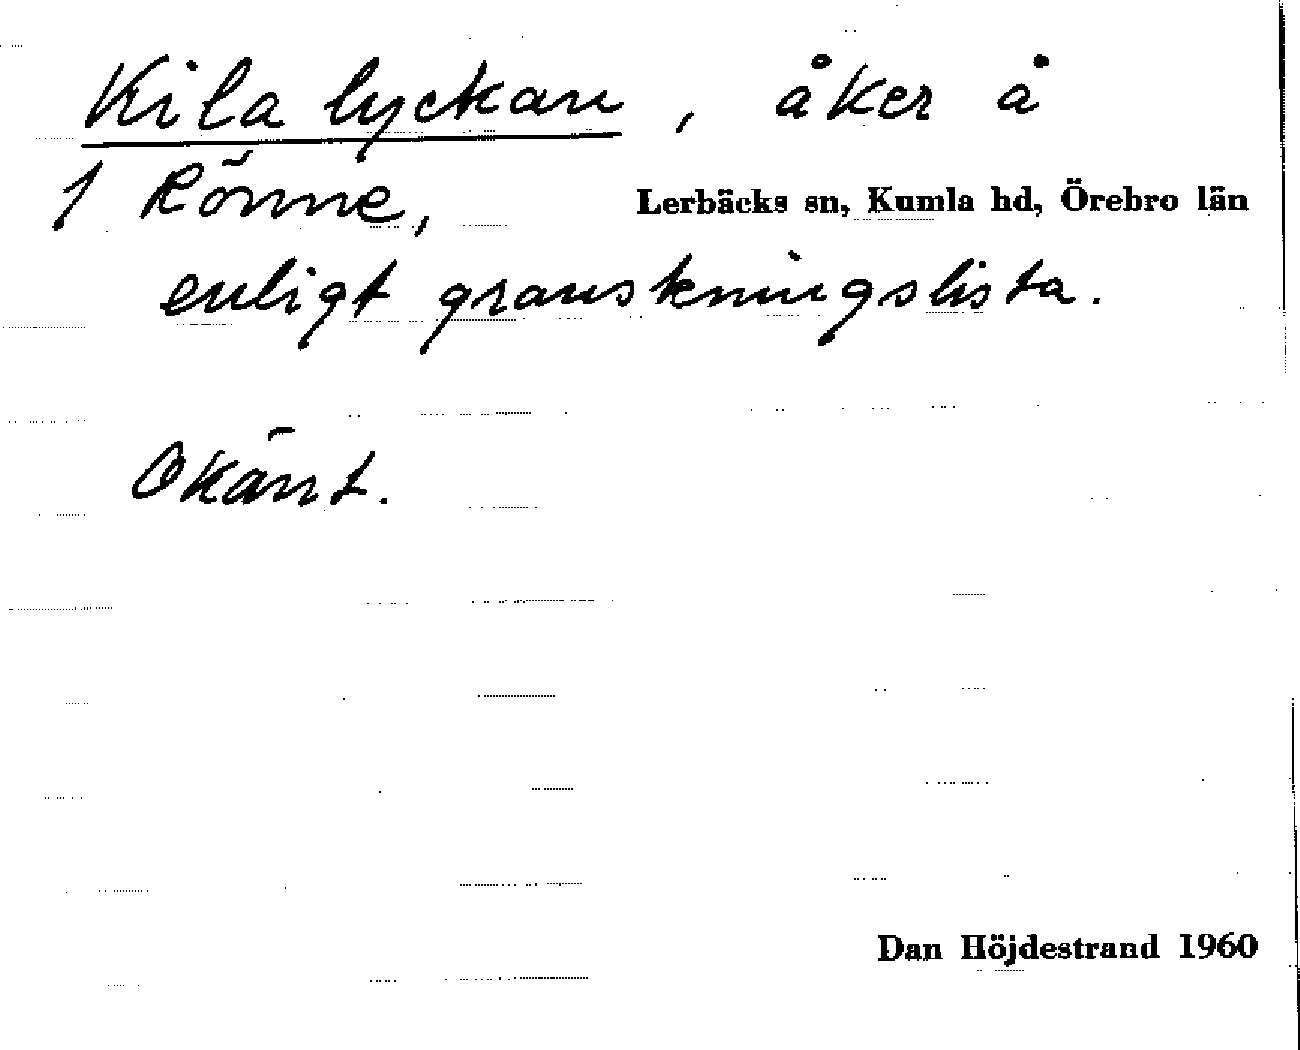 Kila lyckan, åker å
1 Rönne, Lerbäcks sn, Kumla hd, Örebro län
enligt granskningslista.
Okänt.
Dan Höjdestrand 1960